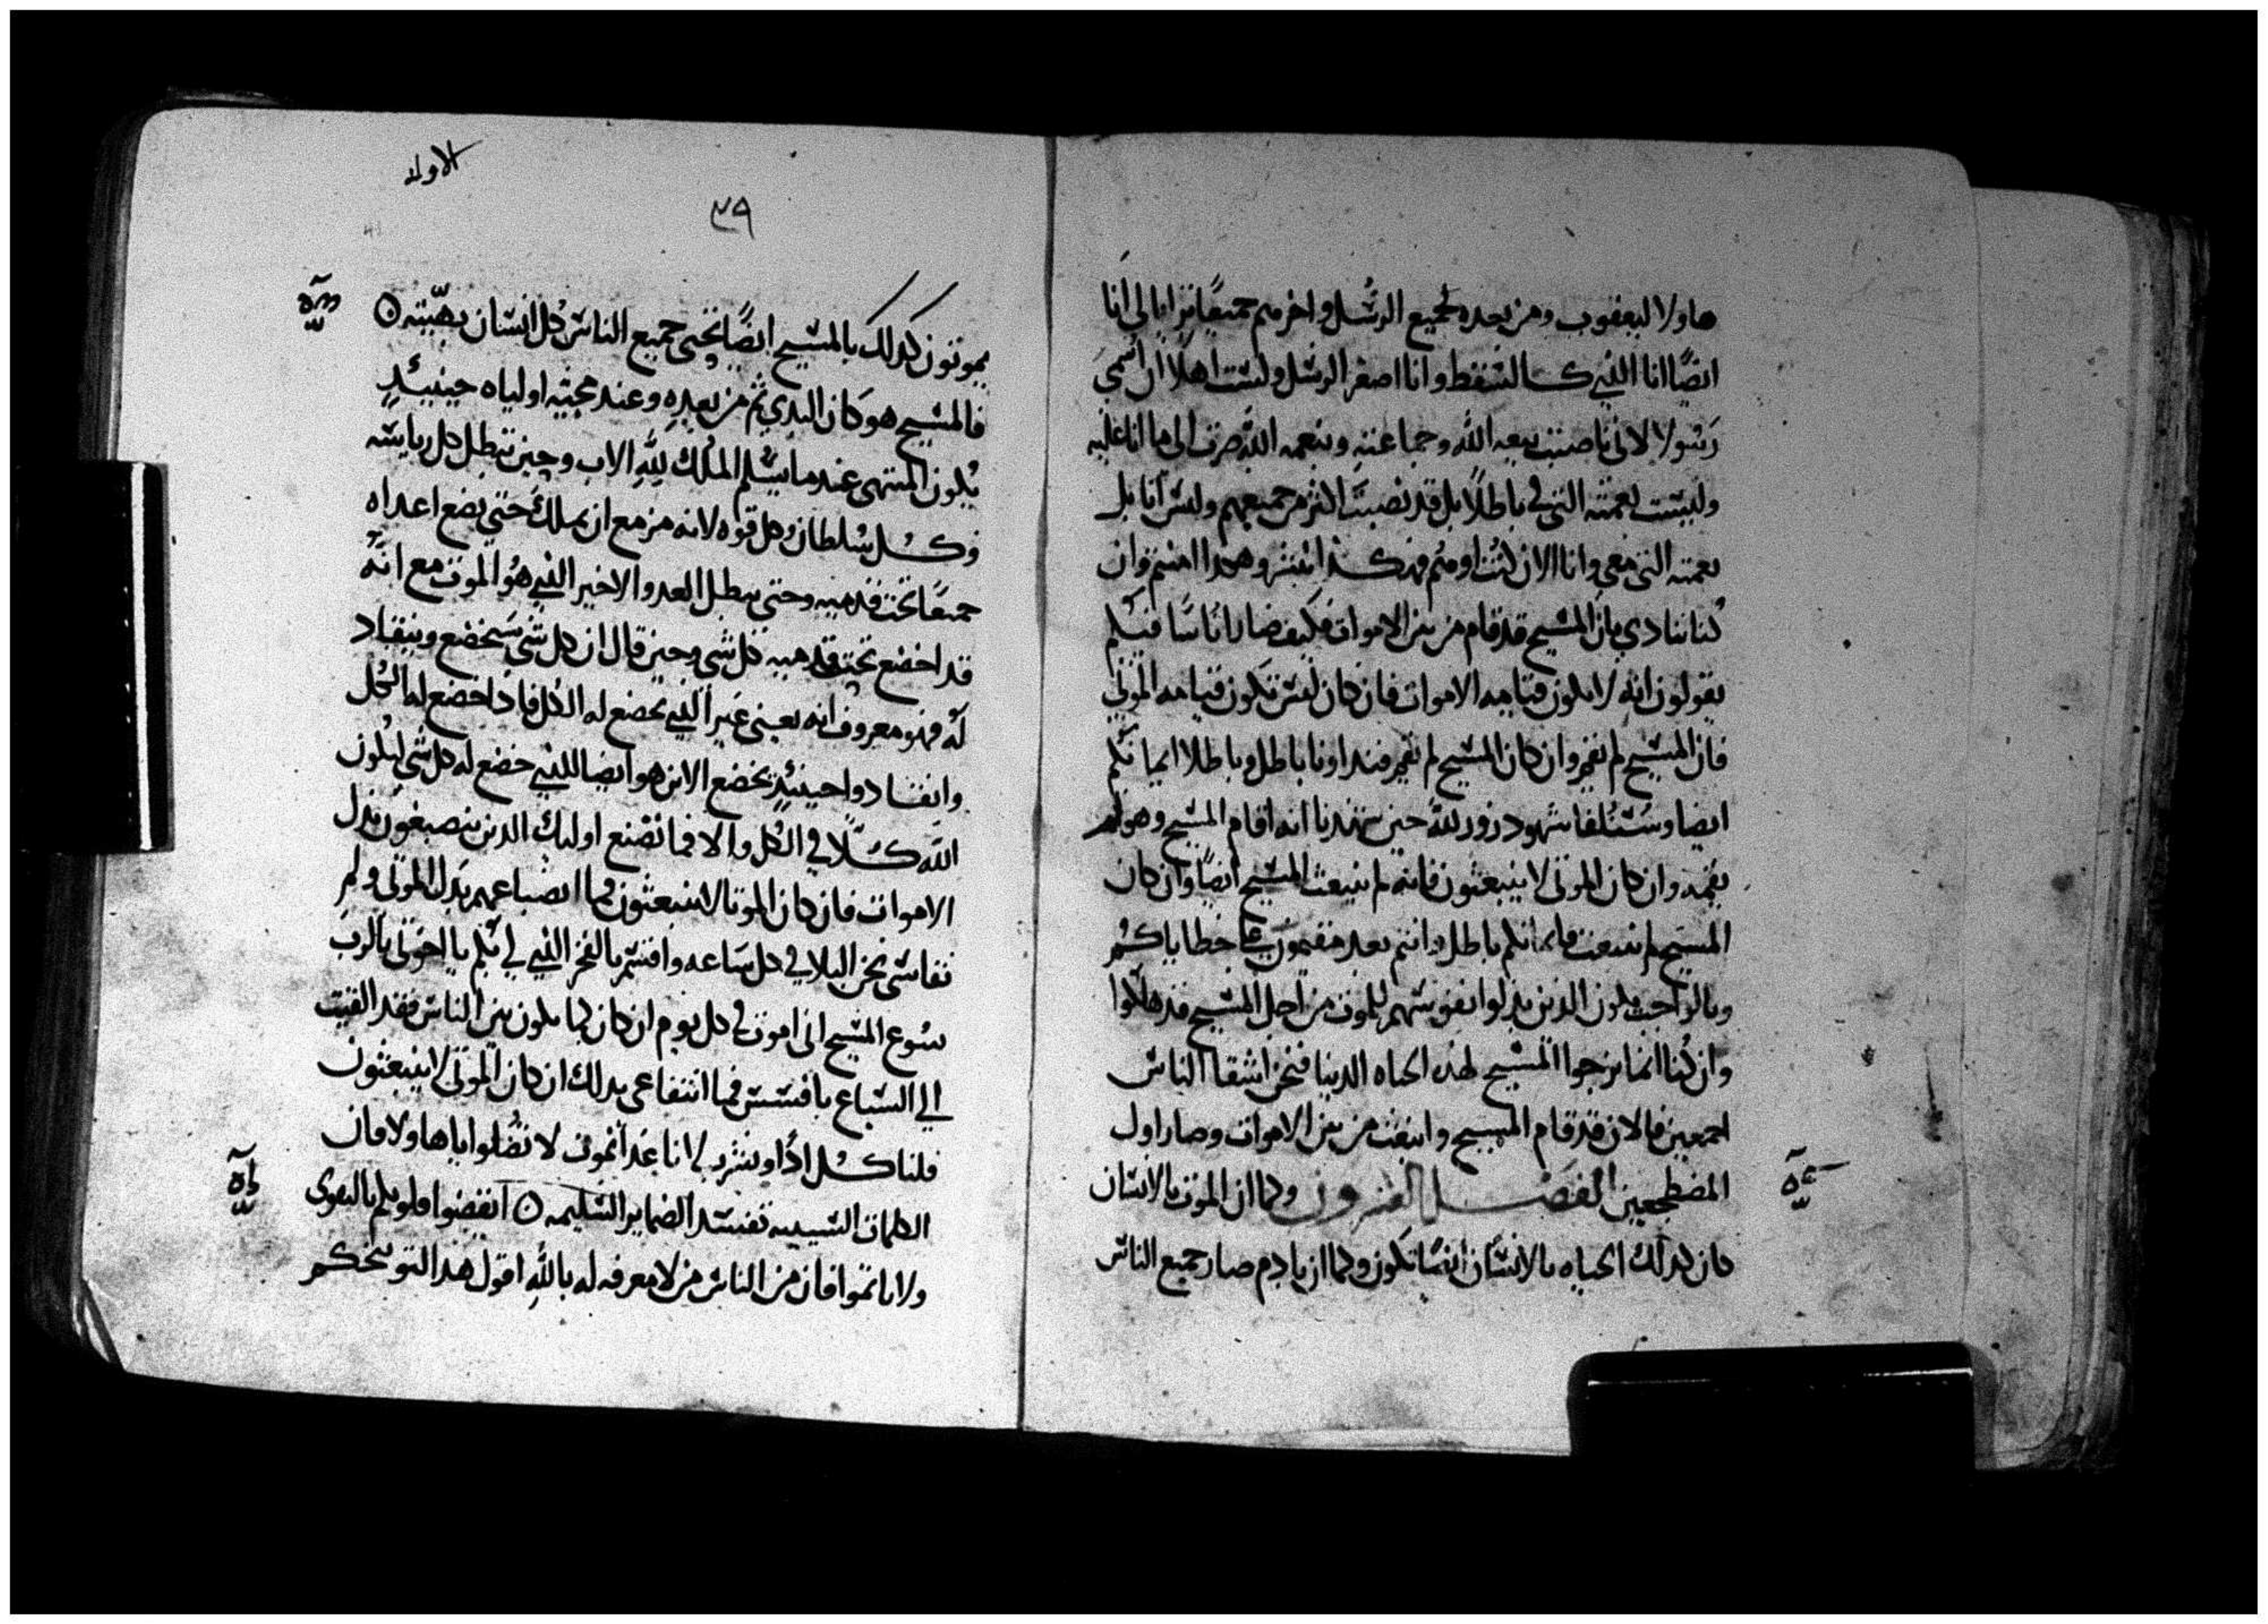 هاولا ليعقوب ومن بعده لجميع الرسُل واخرهم جميعًا ترايا لي انَا
ايضًا انا الذي كالسقط وانا اصغر الرسل ولست اهلًا ان اسمى
رَسُولا لاني ناصبت بيعه الله وجماعته وبنعمه الله صرت الى ما انا عليه
وليست نعمته التي فيّ باطلًا بل قد نصبت اكثر من جميعهم وليس انا بل
نعمته التي معي وانا الان كنت او هُم فهكذا نبشر وهكذا امنتم وان
كُنا ننادي بان المسيح قد قام من بين الاموات فكيف صار اناسًا فيكم
يقولون انه لا يكون قيامه الاموات فان كان ليس تكون قيامه الموتى
فان المسيح لم يقم وان كان المسيح لم يقم فنداونا باطل وباطلا ايمانكم
ايضا وسَنُلفا شهود زور لله حين شهدنا انه اقام المسيح وهو لم
يقمه وان كان الموتى لا ينبعثون فانه لم ينبعث المسيح ايضًا وان كان
المسيح لم ينبعث فايمانكم باطل وانتم بعد مقيمون على خطاياكم
وبالواجب يكون الدين بذلوا نفوسهم للموت من اجل المسيح قد هلكوا
وان كُنا انما نرجوا المسيح لهذه الحياه الدنيا فنحن اشقا الناس
اجمعين فالان قد قام المسيح وانبعث من بين الاموات وصار اول
المضطجعين الفصل العشرون وكما ان الموت بالانسان
كان كدلك الحياه بالانسان ايضًا تكون وكما ان بادم صار جميع الناس
الاوله
٣٩
يموتون كدلك بالمسيح ايضًا يحيى جميع الناس كل انسان بهيّيته ۞
فالمسيح هو كان البدي ثم من بعدِه وعند مجيّه اولياه حينيئدٍ
يكون المنتهى عند ما يسُلم الملك للهِ الاب وحين تبطل كل رياسه
وكُل سُلطان وكل قوه لانه مزمع ان يملك حتى يضع اعداه
جميعًا تحت قدميه وحتى يبطل العدو الاخير الذي هُو الموت مع انَه
قد اخضع تحت قدميه كل شي وحين قال ان كل شي سَيخضع وينقاد
لَه فهو معروف انه يعني غير الذي يخضع له الكل فاذا خضع له الكل
وانقادوا حينئدٍ يخضع الابن هو ايضا للذي خضع له كل شي ليكون
الله كلًا في الكل والا فما تصنع اوليك الدين ينصبغون بدل
الاموات فان كان الموتا لا ينبعثون فما انصباعهم بَدل الموتى ولم
نقاسى نحن البلا في كل ساعه واقسم بالفخر الذي لي بكم يا اخوتي بالربَ
يسُوع المسيح اني اموت في كل يوم ان كان كما يكون بين الناس فقد القيت
الي السباع بافسس فما انتفاعى بدلك ان كان الموتى لا ينبعثون
فلناكل ادًا ونشرب لانا غدا نموت لا تضُلوا ياهاولا فان
الكلمات السييه تفسد الضماير السَليمه ۞ ايقضوا قلوبكم بالتقوى
ولا تاتموا فان من الناس من لا معرفه له بالله اقول هدا لتوبيخكم